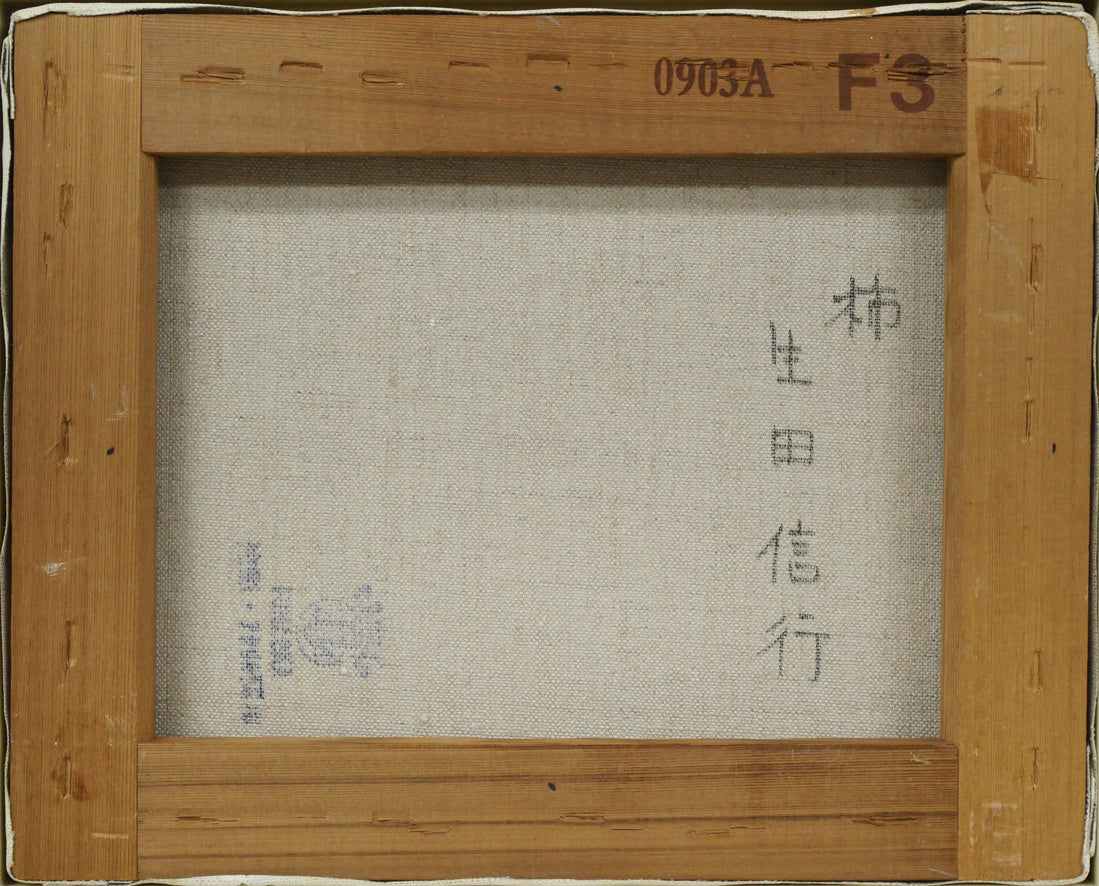 0903A F3
柿
生田信行